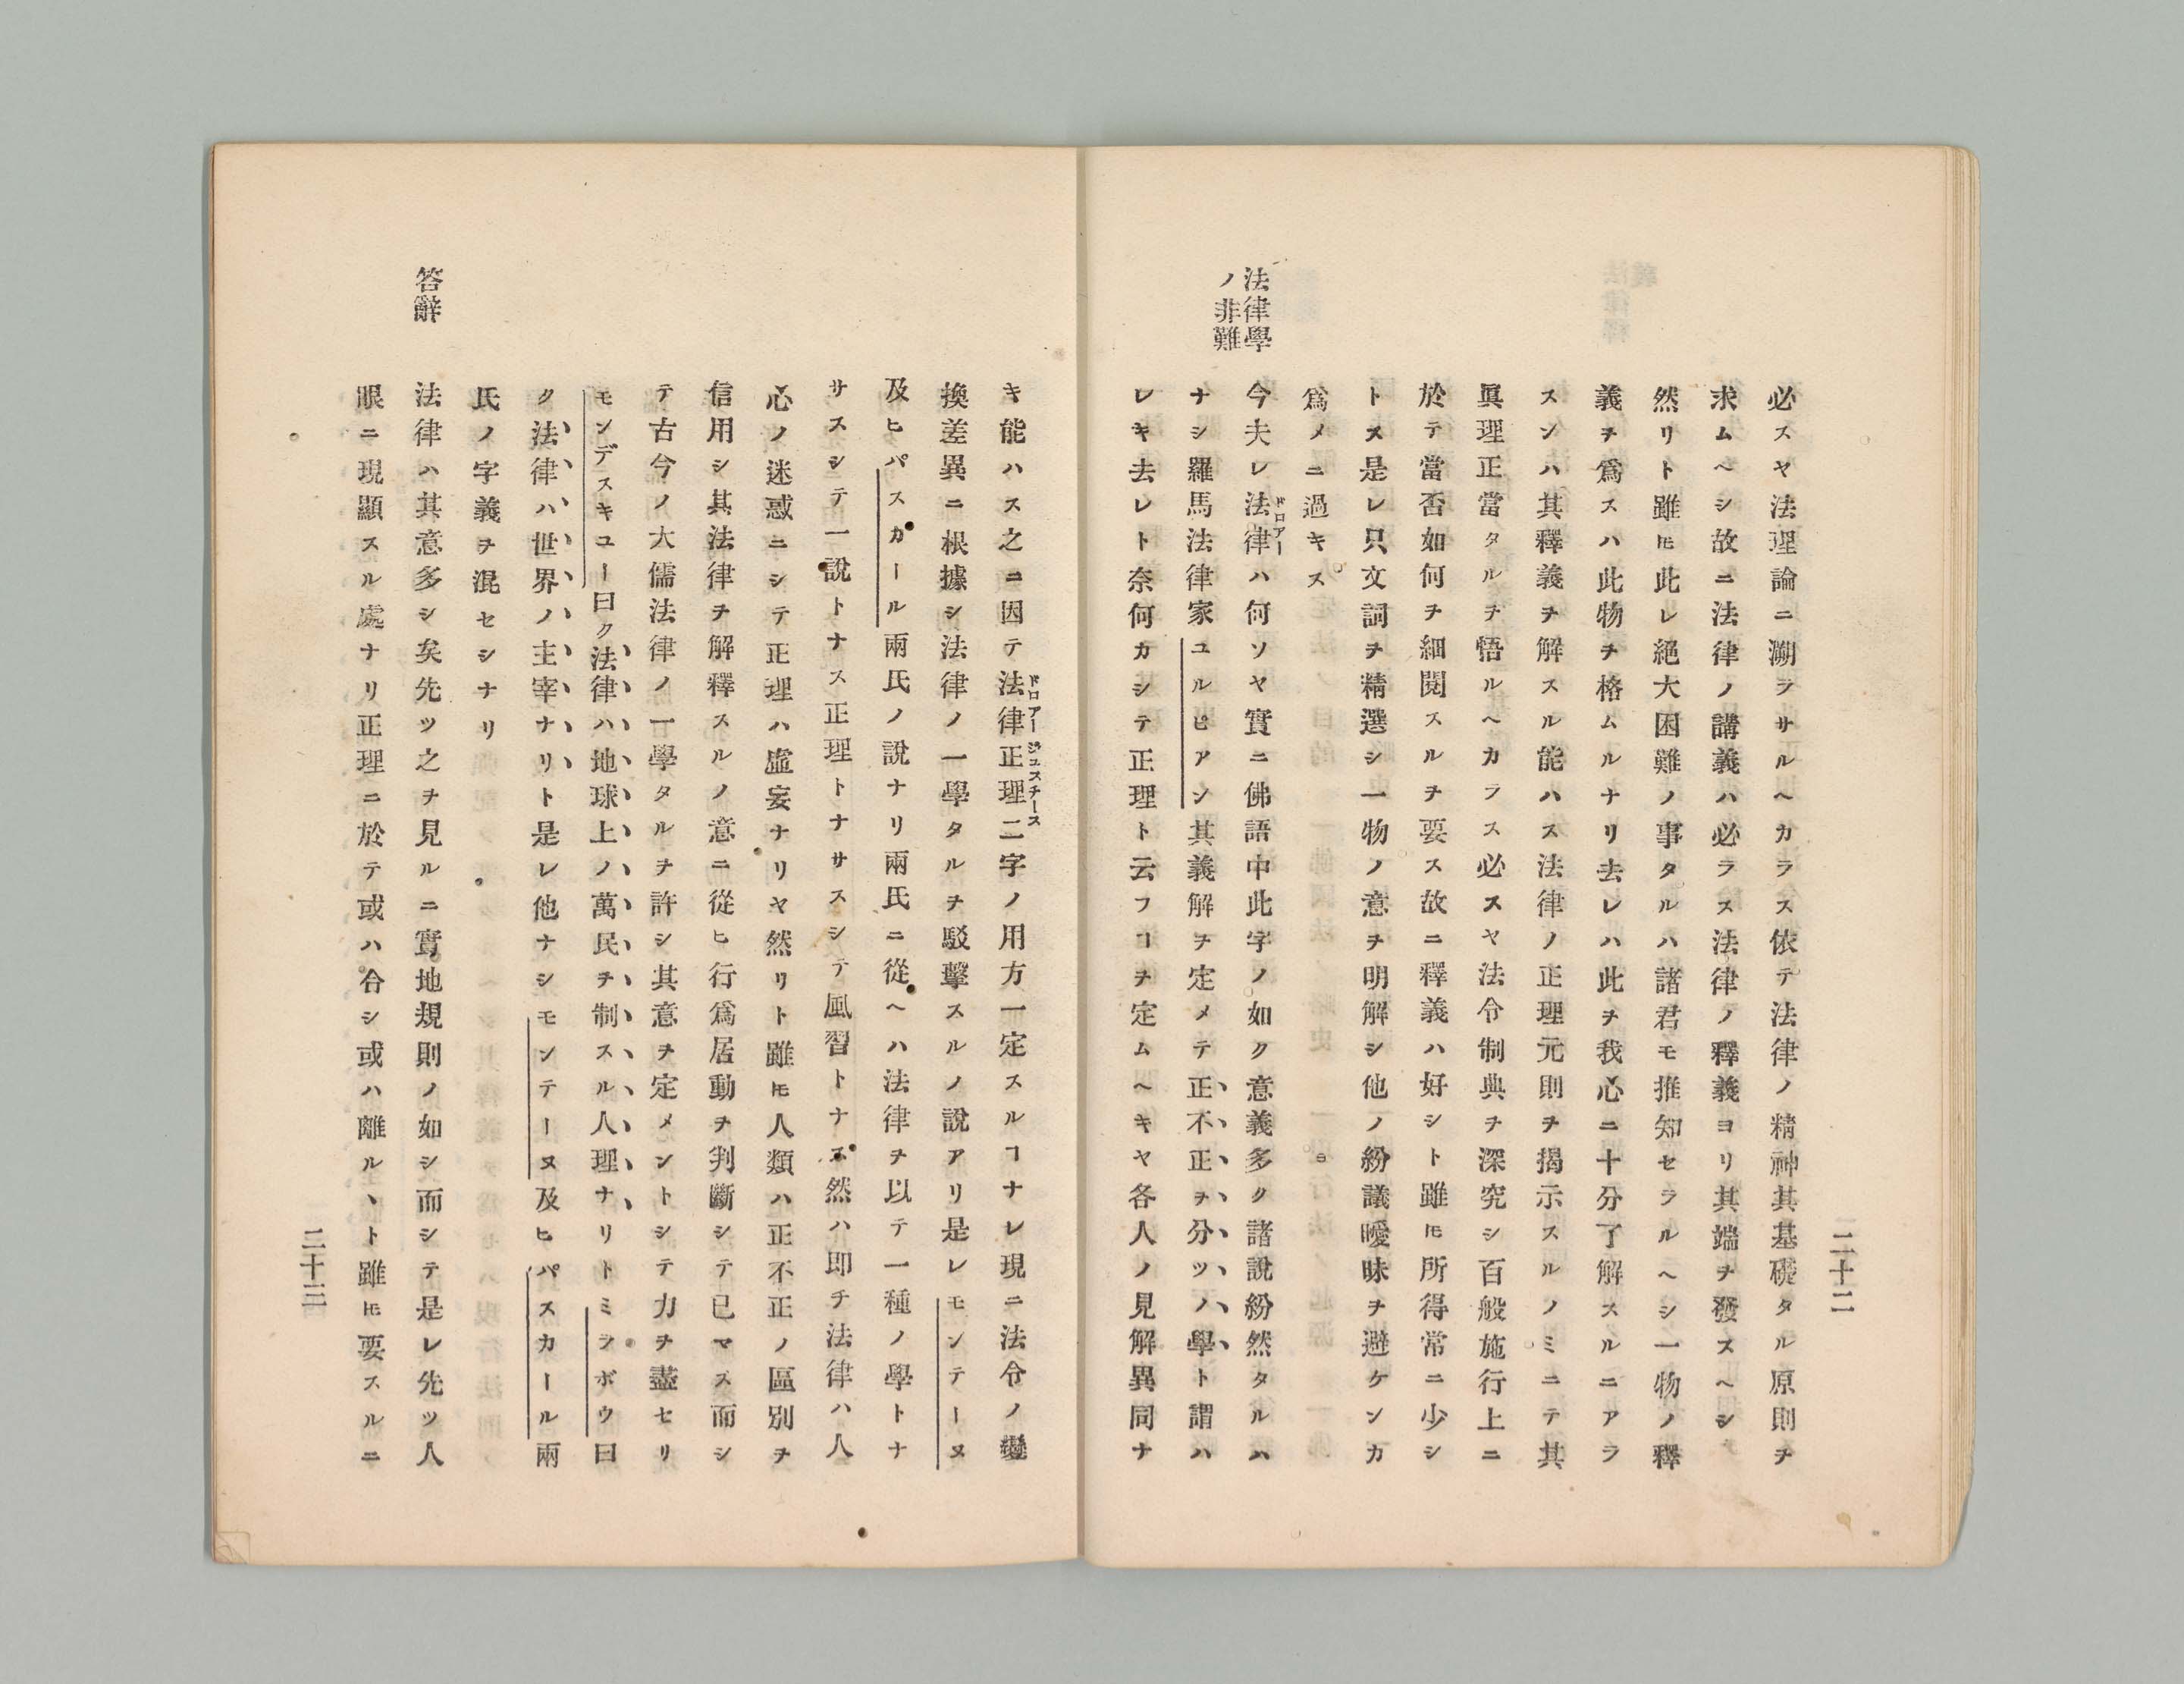 二十二
必スヤ法理論ニ溯ラサルヘカラス依テ法律ノ精神其基礎タル原則ヲ
求ムヘシ故ニ法律ノ講義ハ必ラス法律ノ釋義ヨリ其端ヲ發スヘシ
然リト雖𪜈此レ絕大困難ノ事タルハ諸君モ推知セラルヘシ一物ノ釋
義ヲ爲スハ此物ヲ格ムルナリ去レハ此ヲ我心ニ十分了解スルニアラ
スンハ其釋義ヲ解スル能ハス法律ノ正理元則ヲ揭示スルノミニテ其
眞理正當タルヲ悟ルヘカラス必スヤ法令制典ヲ深究シ百般施行上ニ
於テ當否如何ヲ細閱スルヲ要ス故ニ釋義ハ好シト雖𪜈所得常ニ少シ
トス是レ只文詞ヲ精選シ一物ノ意ヲ明解シ他ノ紛議曖昧ヲ避ケンカ
爲メニ過キス
法律學
ノ非難
今夫レ法律ハ何ソヤ實ニ佛語中此字ノ如ク意義多ク諸說紛然タルハ
ドロアー
ナシ羅馬法律家ユルピアン其義解ヲ定メテ正不正ヲ分ツノ學ト謂ハ
レキ去レト奈何カシテ正理ト云フヿヲ定ムヘキヤ各人ノ見解異同ナ
キ能ハス之ニ因テ法律正理二字ノ用方一定スルヿナレ現ニ法令ノ變
ドロアー ジュスチース
換差異ニ根據シ法律ノ一學タルヲ駁擊スルノ說アリ是レモンテーヌ
及ヒパスカール兩氏ノ說ナリ兩氏ニ從ヘハ法律ヲ以テ一種ノ學トナ
サスシテ一說トナス正理トナサスシテ風習トナス然ハ即チ法律ハ人
心ノ迷惑ニシテ正理ハ虛妄ナリヤ然リト雖𪜈人類ハ正不正ノ區別ヲ
信用シ其法律ヲ解釋スルノ意ニ從ヒ行爲居動ヲ判斷シテ已マス而シ
テ古今ノ大儒法律ノ一學タルヲ許シ其意ヲ定メントシテ力ヲ盡セリ
モンデスキユー曰ク法律ハ地球上ノ萬民ヲ制スル人理ナリトミラボウ曰
ク法律ハ世界ノ主宰ナリト是レ他ナシモンテーヌ及ヒパスカール兩
氏ノ字義ヲ混セシナリ
答辭
法律ハ其意多シ矣先ツ之ヲ見ルニ實地規則ノ如シ而シテ是レ先ツ人
眼ニ現顯スル處ナリ正理ニ於テ或ハ合シ或ハ離ルヽト雖𪜈要スルニ
二十三